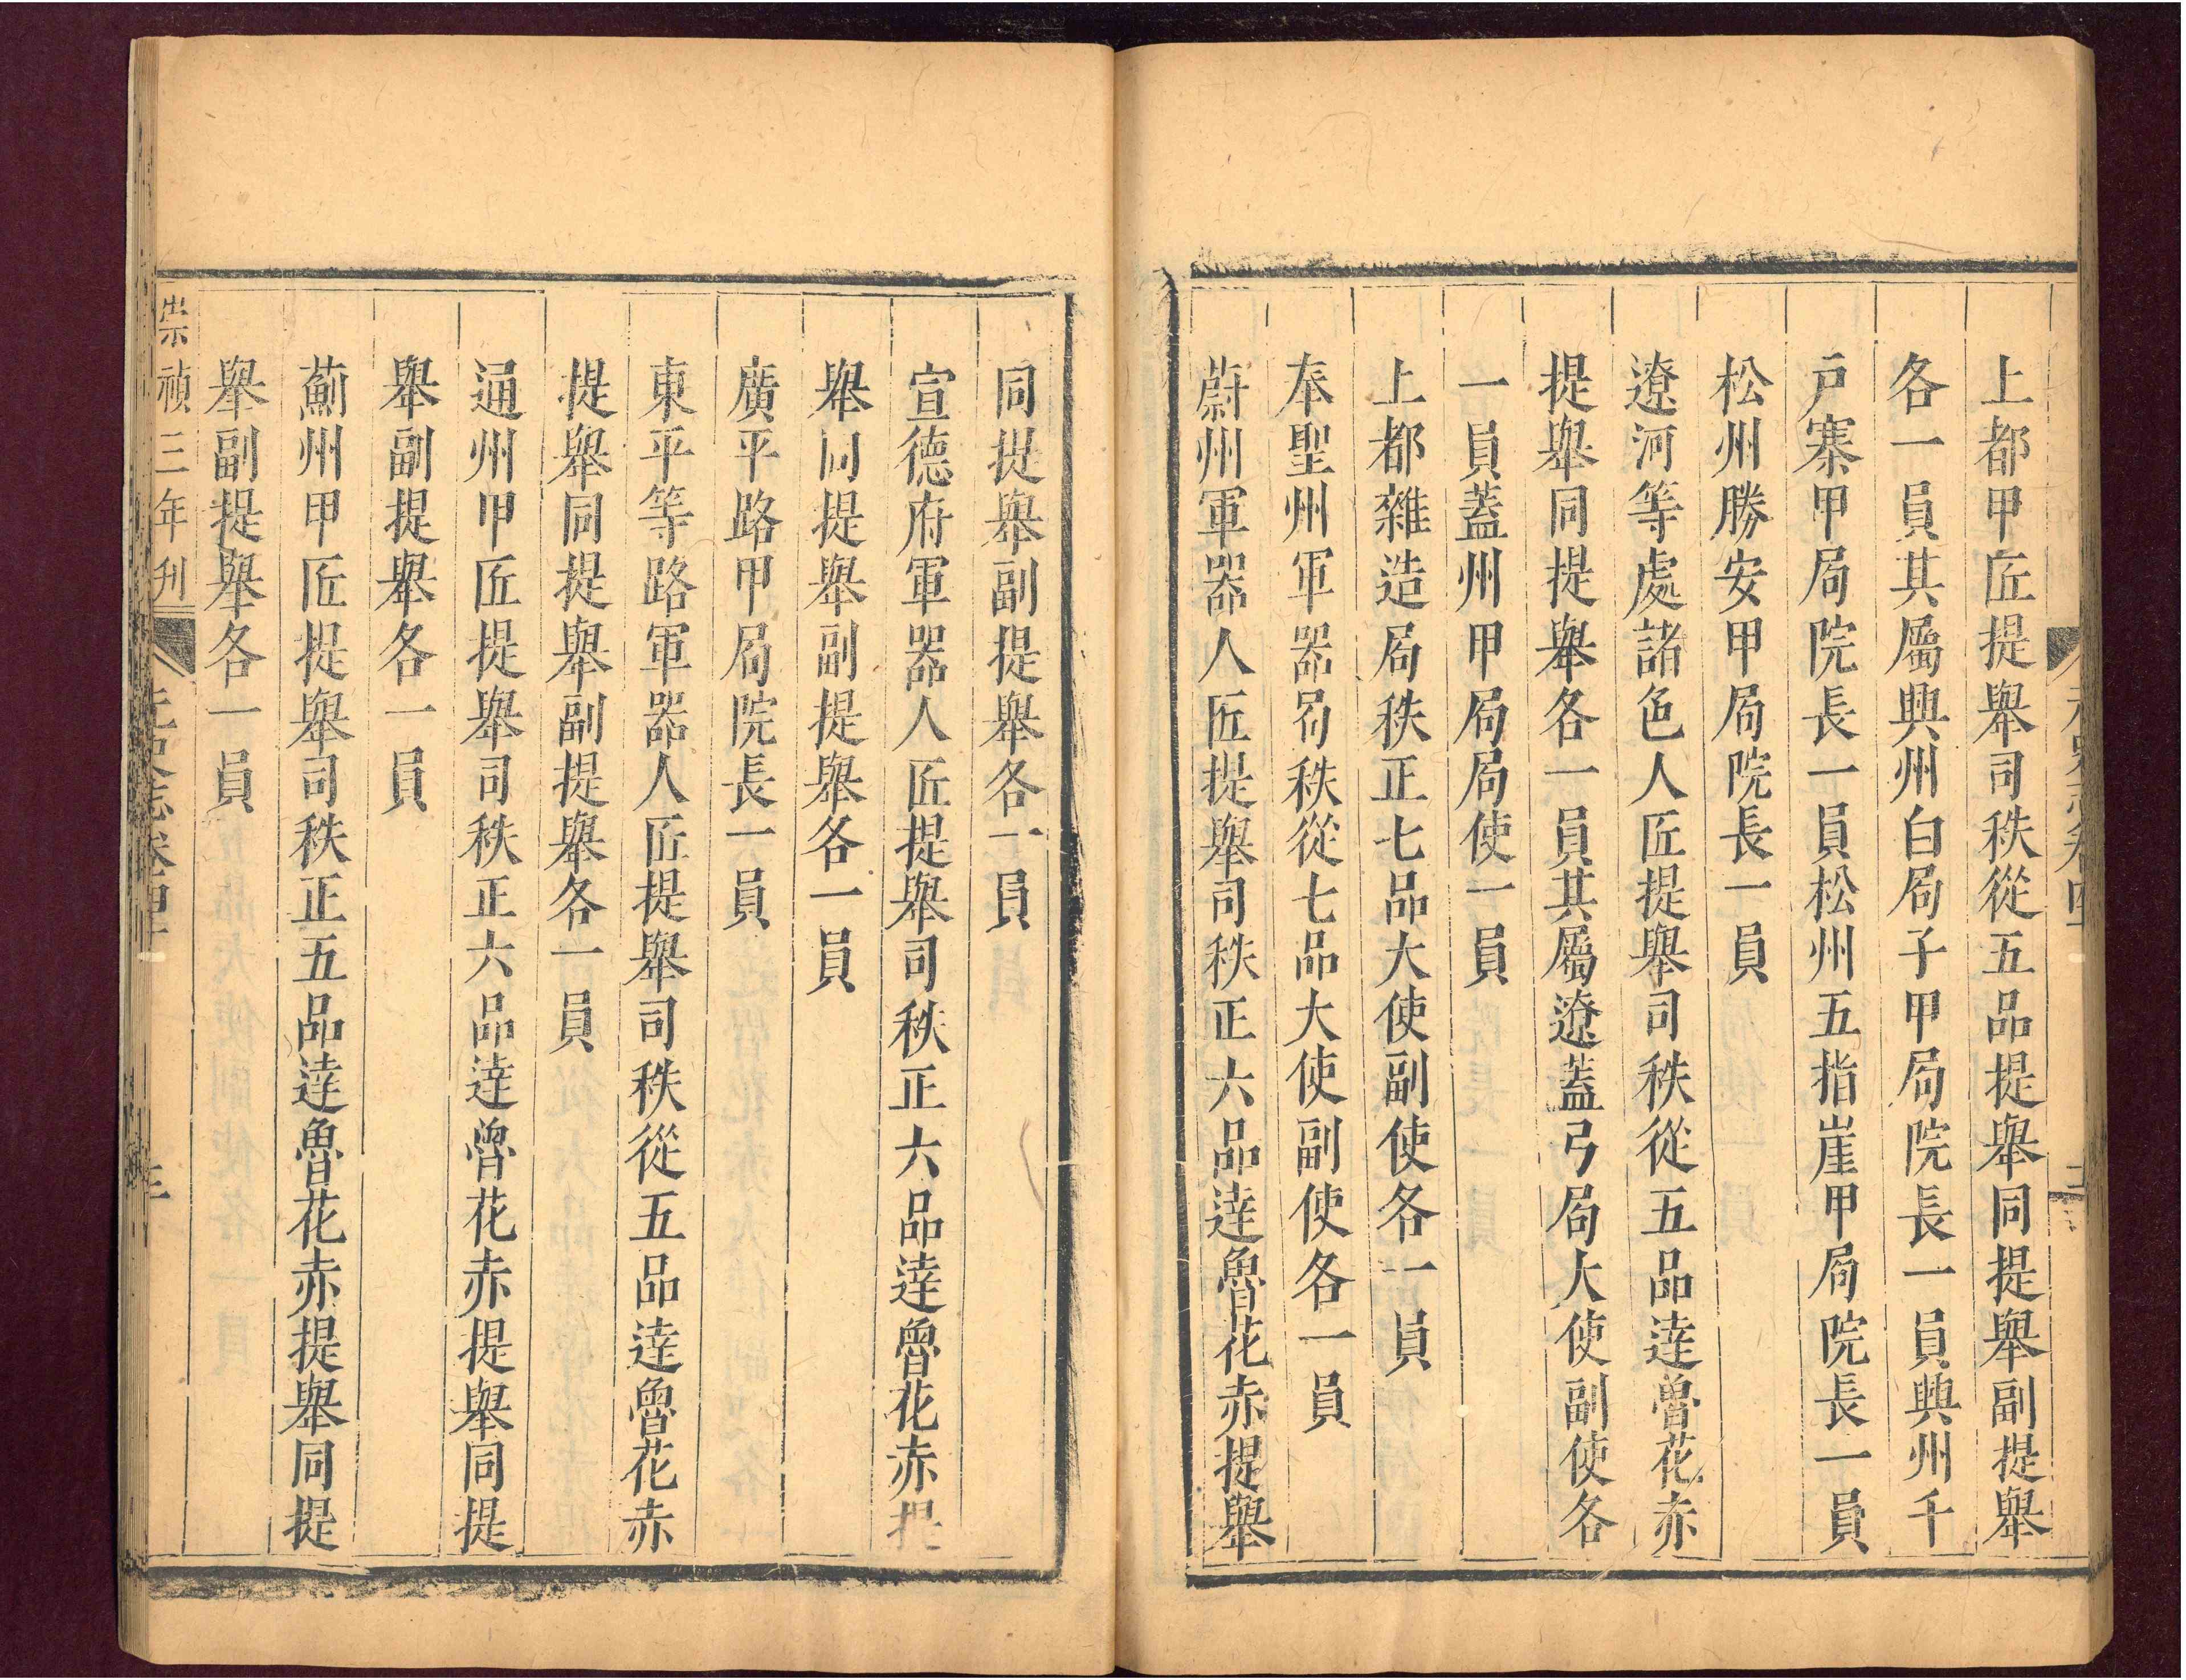 上都甲匠提舉司秩從五品提舉同提舉副提舉
各一員其屬興州白局子甲局院長一員興州千
戸寨甲局院長一員松州五指崖甲局院長一員
松州勝安甲局院長一員
遼河等處諸色人匠提舉司秩從五品達魯花赤
提舉同提舉各一員其屬遼蓋弓局大使副使各
一員蓋州甲局局使一員
上都雜造局秩正七品大使副使各一員
奉聖州軍器局秩從七品大使副使各一員
蔚州軍器人匠提舉司秩正六品達魯花赤提舉
同提舉副提舉各一員
宣德府軍器人匠提舉司秩正六品達魯花赤提
舉同提舉副提舉各一員
廣平路甲局院長一員
東平等路軍器人匠提舉司秩從五品達魯花赤
提舉同提舉副提舉各一員
通州甲匠提舉司秩正六品達魯花赤提舉同提
舉副提舉各一員
薊州甲匠提舉司秩正五品達魯花赤提舉同提
舉副提舉各一員
崇禎三年刋